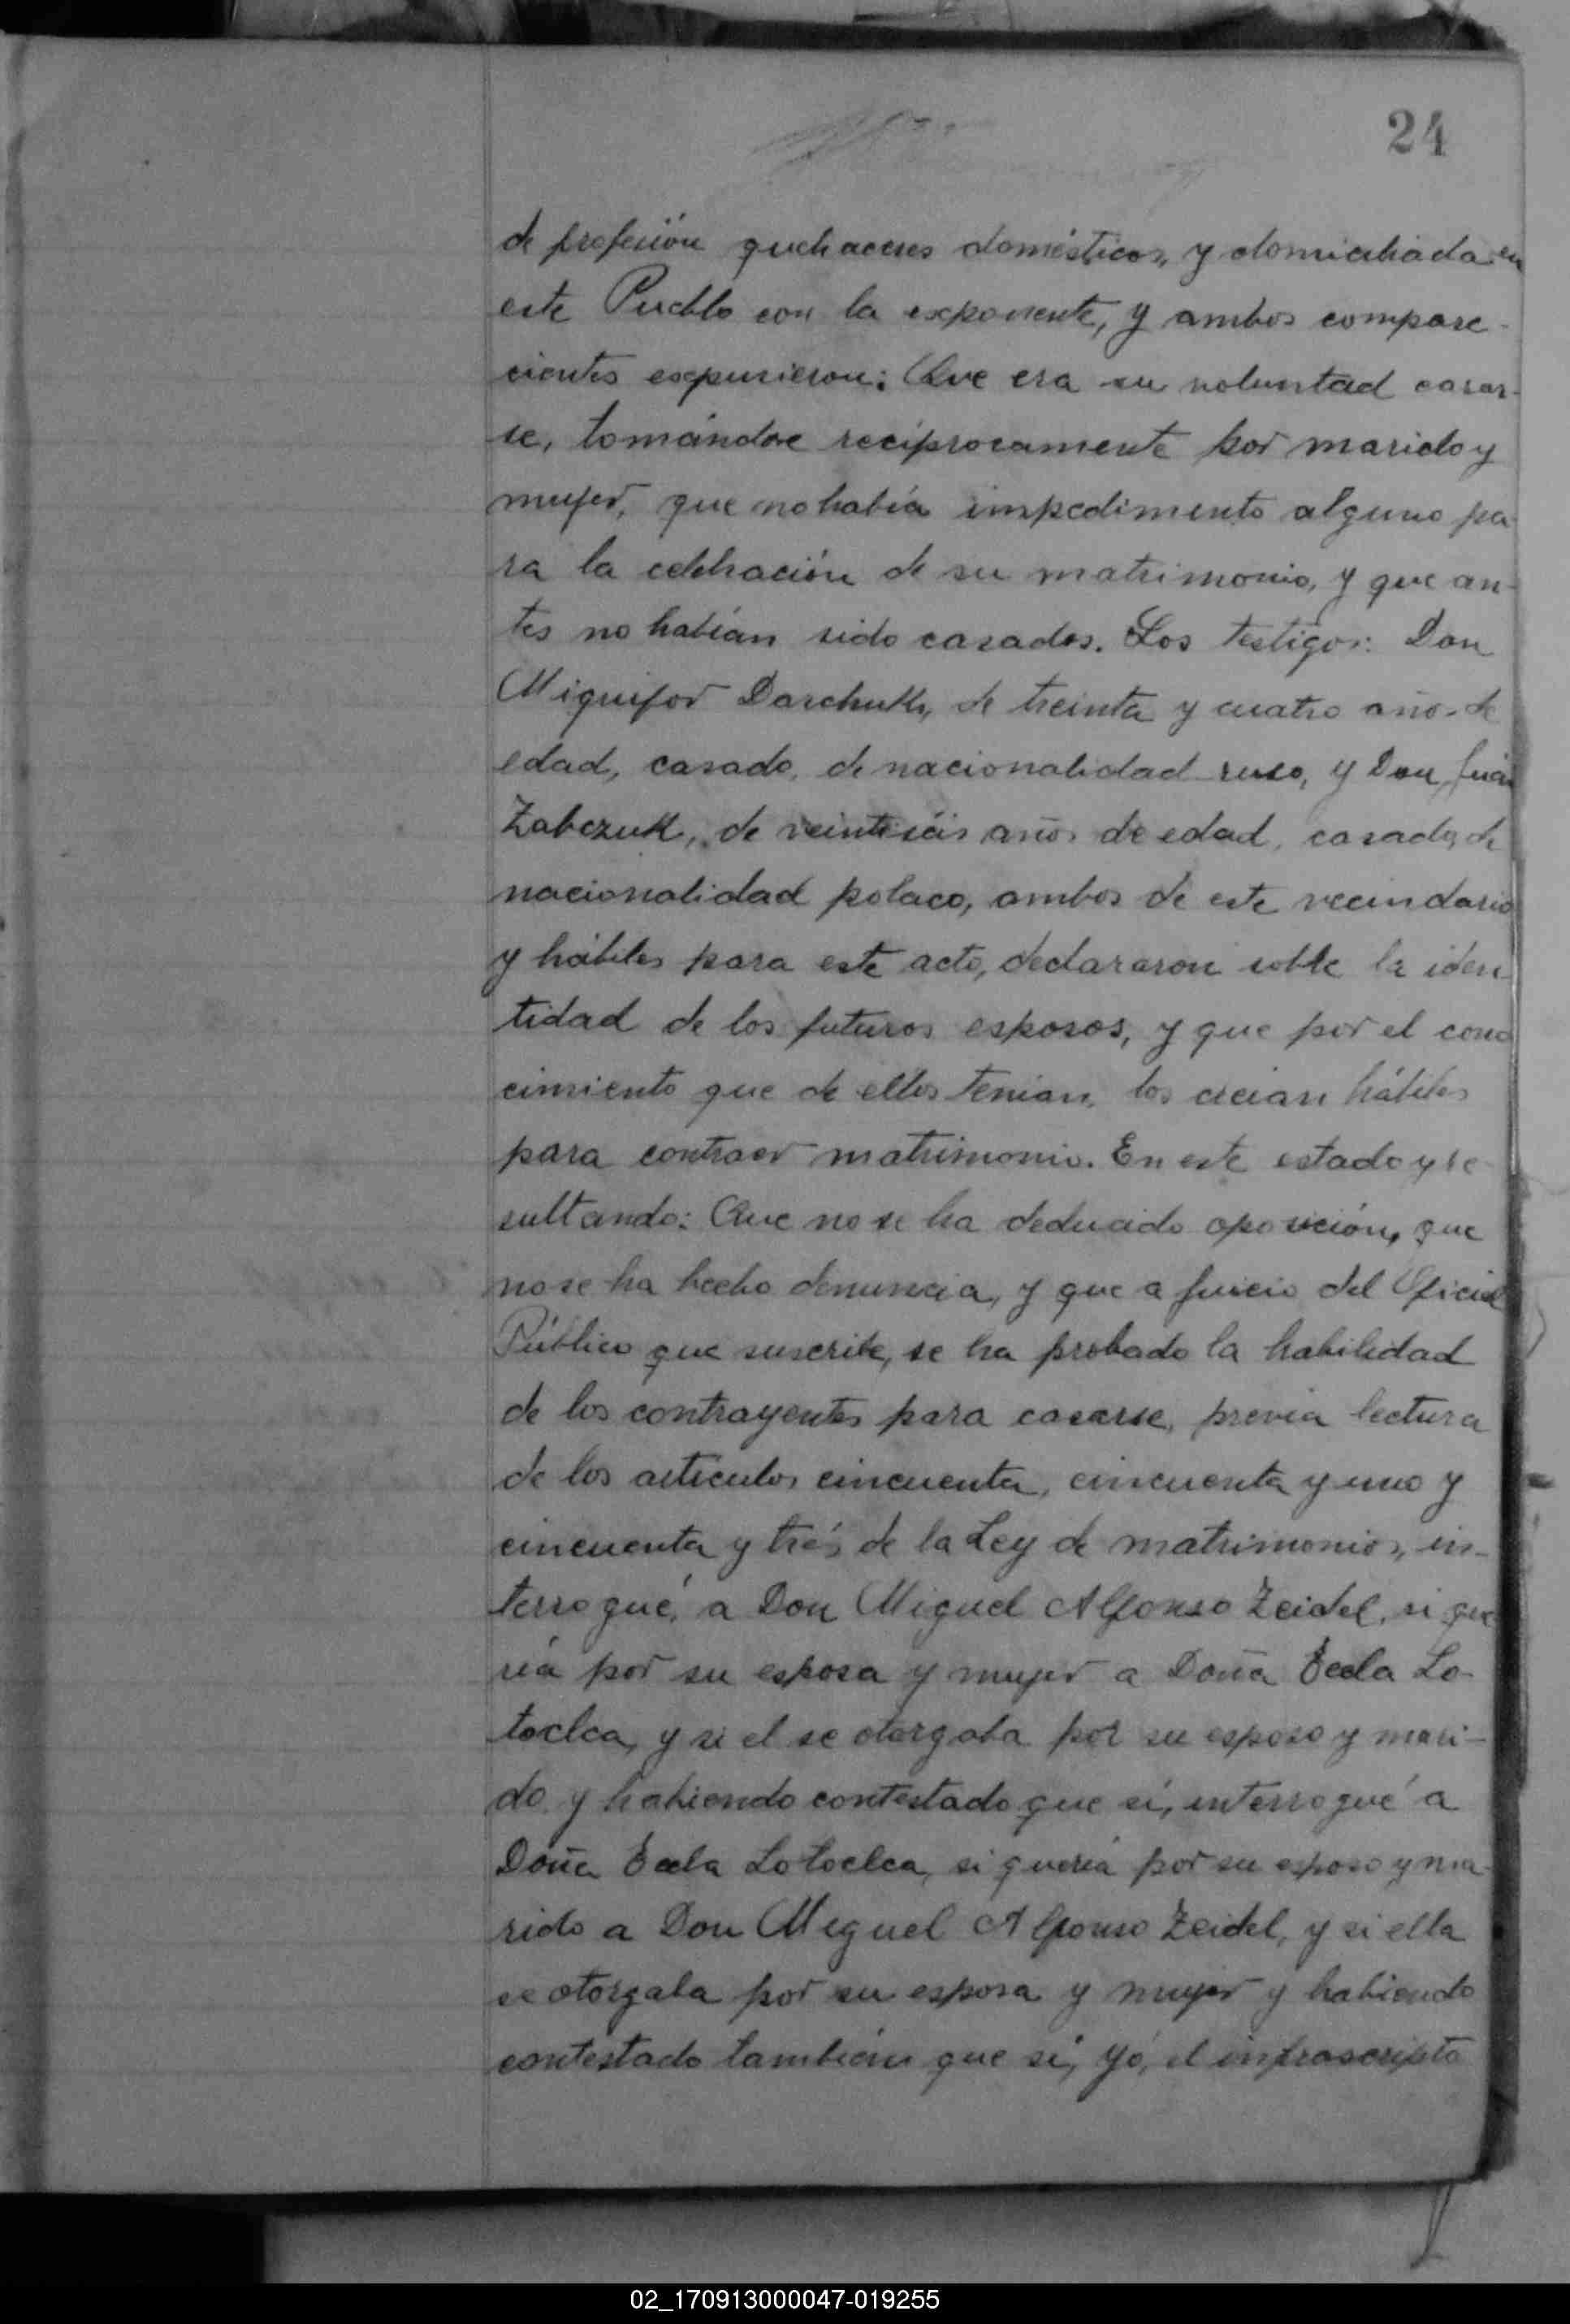 24
de profesión quehaceres domésticos, y domiciliada en
este Pueblo con la exponente, y ambos compare-
cientes expusieron: Que era su voluntad casar-
se, tomándose recíprocamente por marido y
mujer, que no había impedimento alguno pa-
ra la celebración de su matrimonio, y que an-
tes no habían sido casados. Los testigos: Don
Miquifor Darchuk, de treinta y cuatro años de
edad, casado, de nacionalidad ruso, y Don Juan
Zabczuk, de veintiséis años de edad, casado, de
nacionalidad polaco, ambos de este vecindario
y hábiles para este acto, declararon sobre la iden-
tidad de los futuros esposos, y que por el cono
cimiento que de ellos tenían, los creían hábiles
para contraer matrimonio. En este estado y re-
sultando: Que no se ha deducido oposición, que
no se ha hecho denuncia, y que a juicio del Oficial
Público que suscribe, se ha probado la habilidad
de los contrayentes para casarse, previa lectura
de los artículos cincuenta, cincuenta y uno y
cincuenta y trés de la Ley de matrimonios, in-
terrogué, a Don Miguel Alfonso Zeidel, si que
ría por su esposa y mujer a Doña Ecla Lo-
toclca, y si el se otorgaba por su esposo y mari-
do, y habiendo contestado que sí, interrogué a
Doña Ecla Lotoclca, si quería por su esposo y ma-
rido a Don Miguel Alfonso Zeidel, y si ella
se otorgaba por su esposa y mujer y habiendo
contestado también que sí, yó, el infrascripto
02_170913000047-019255